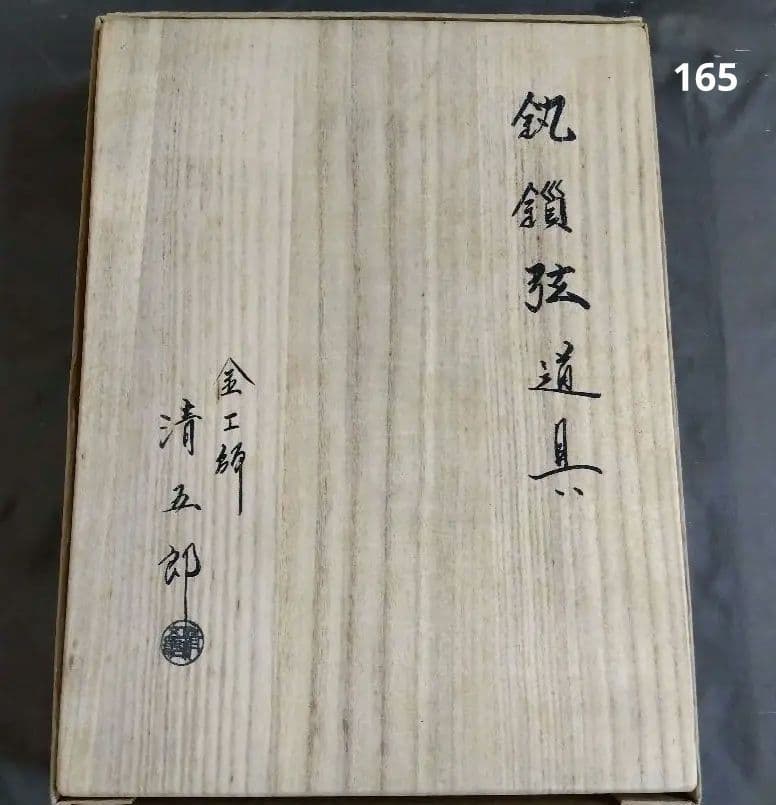 165
釻鎖弦道具
金工師
清五郎